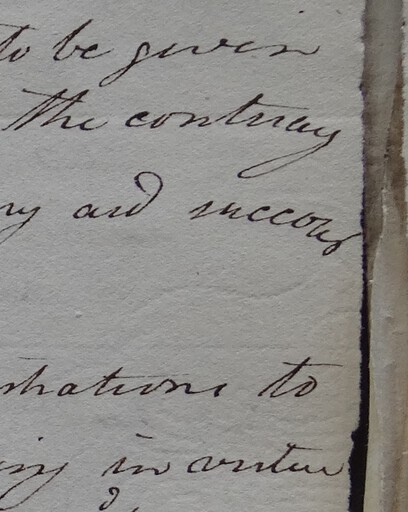 to be given
the contray
ny and succour
strations to
ing in virtue